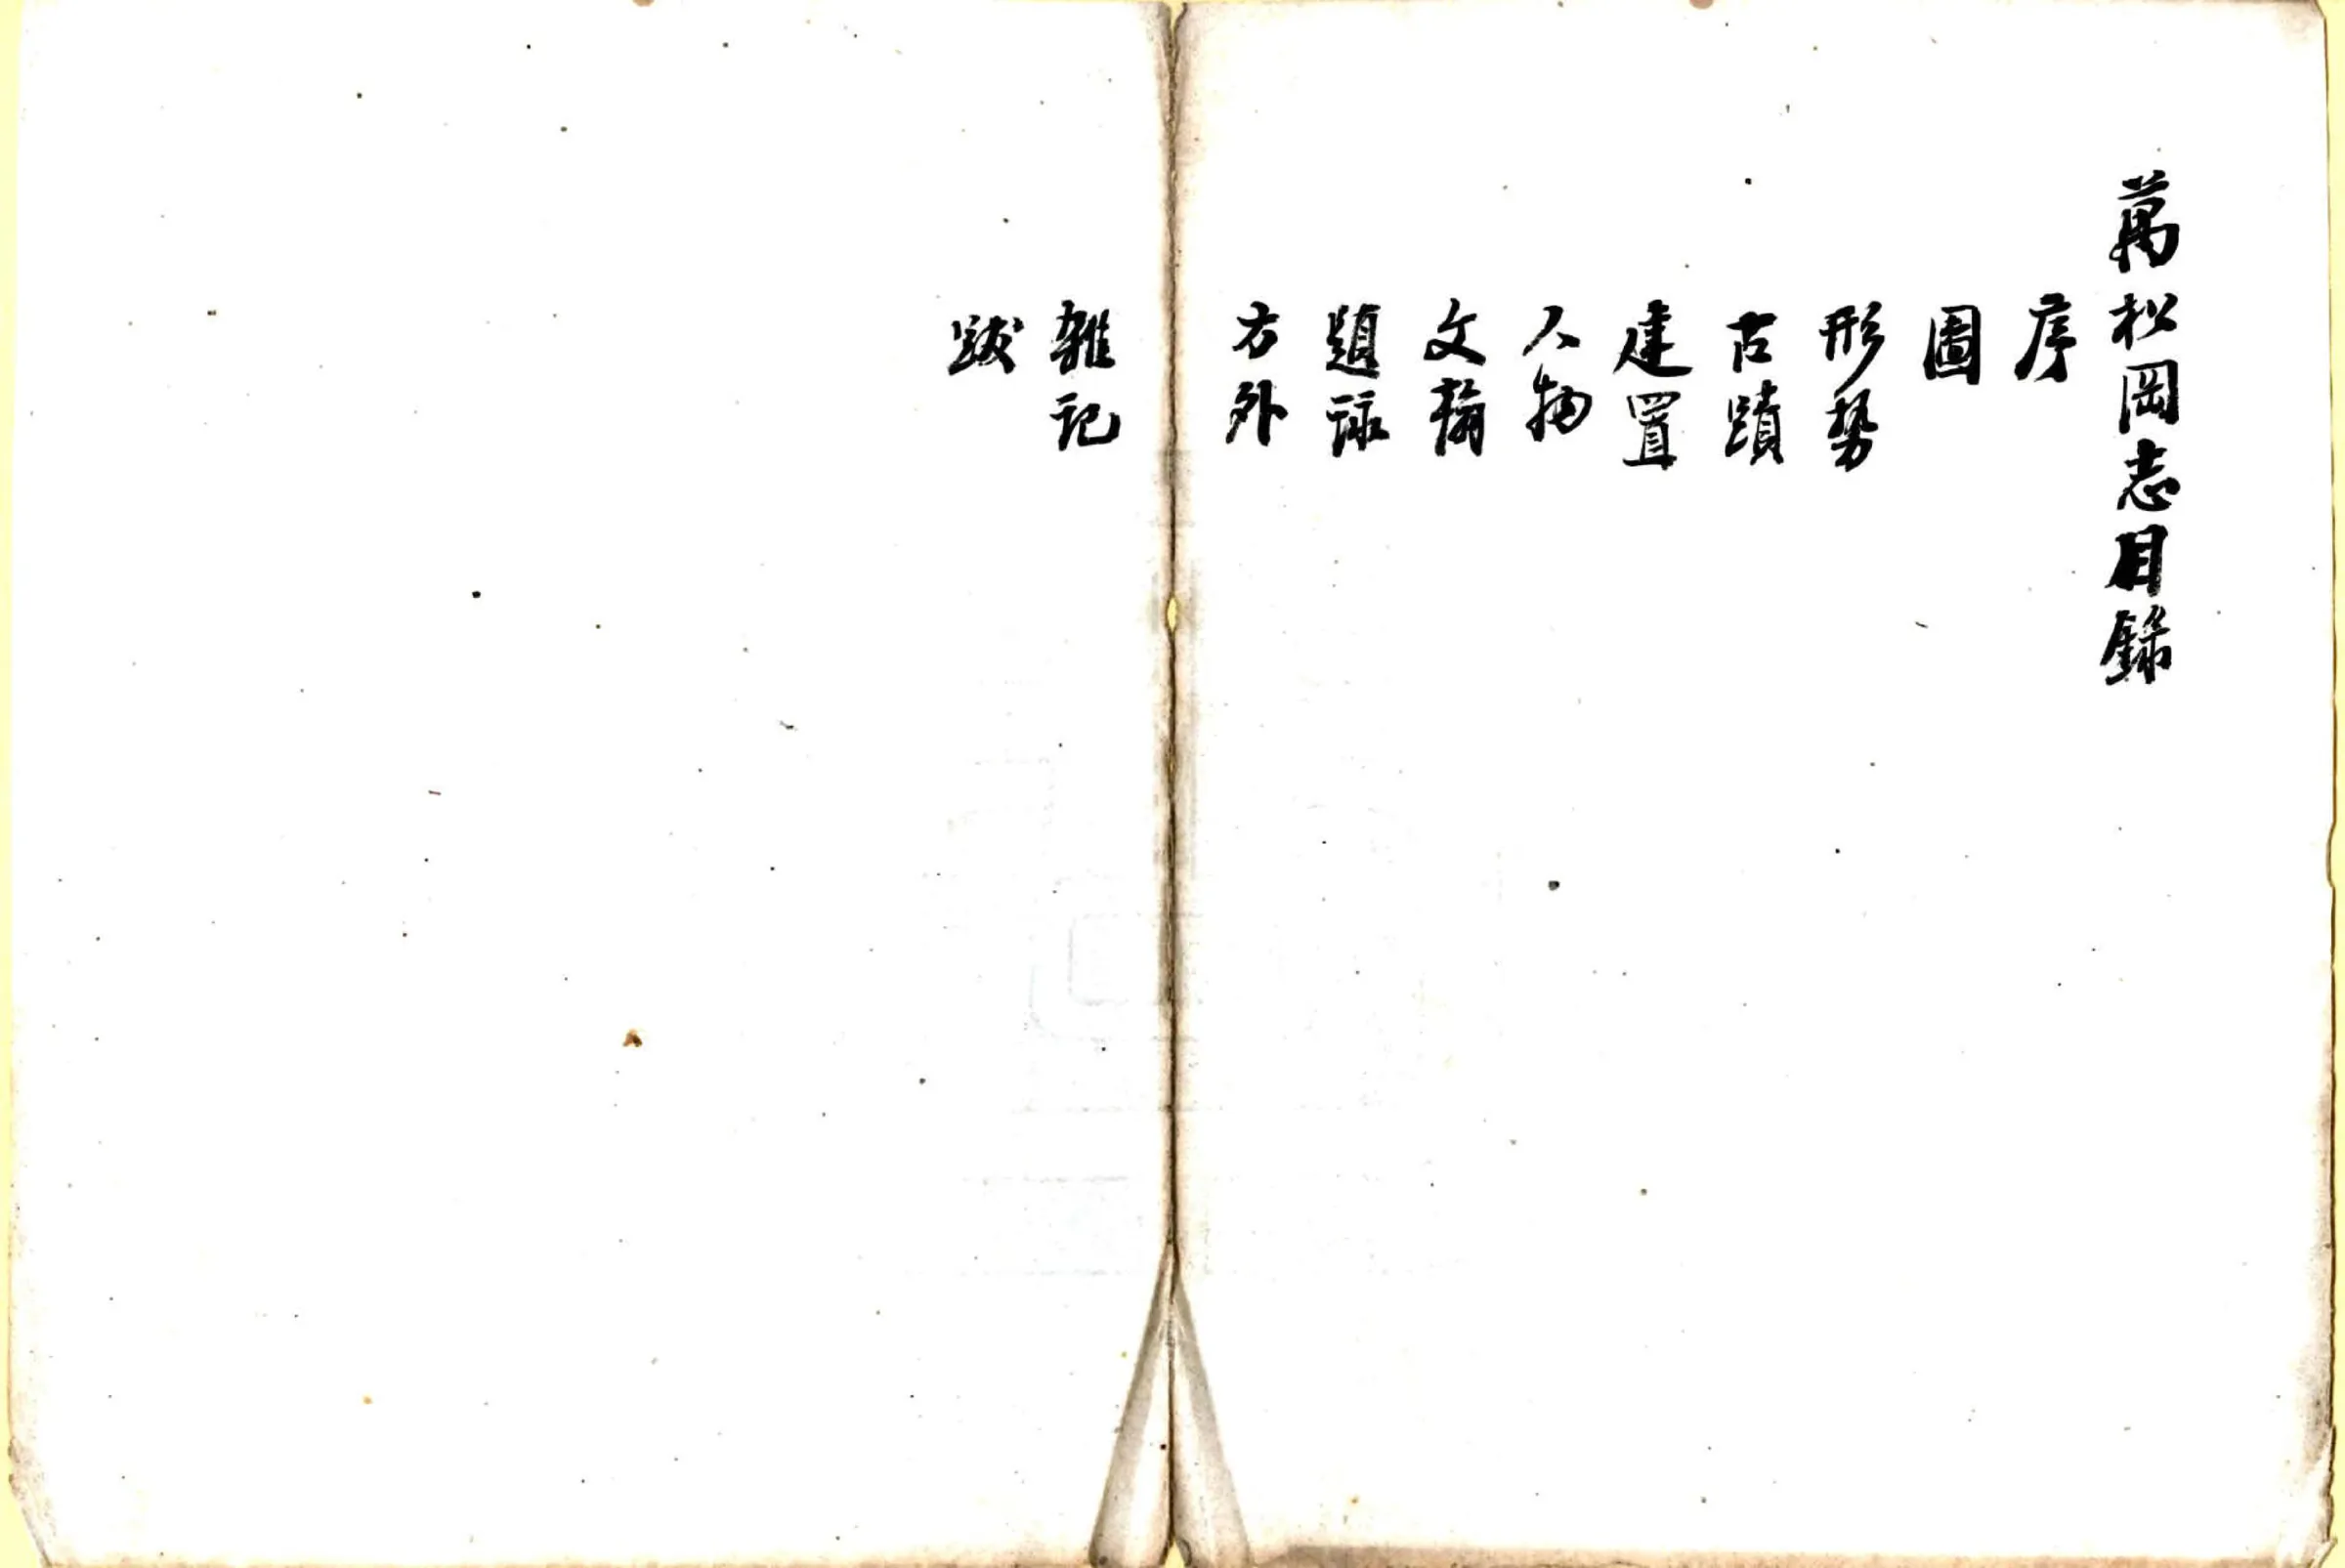 萬松岡志目錄
序
圖
形勢
古蹟
建置
人物
文翰
題詠
方外
雜記
跋